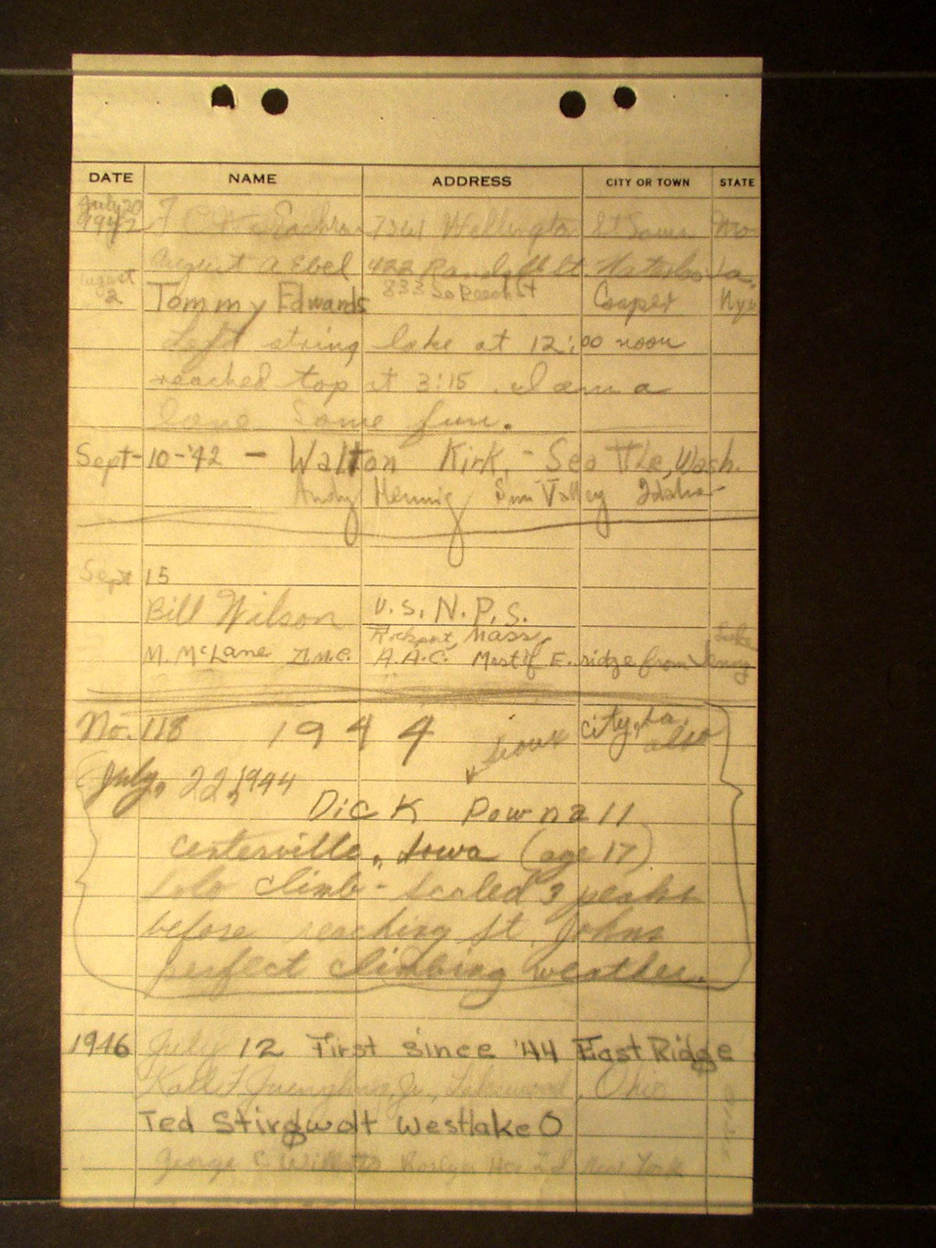 DATE NAME ADDRESS CITY OR TOWN STATE
July 20 1942 7361 Wellington St Louis Mo
August A Ebel 422 Randall St Waterloo Ia.
August 2 Tommy Edwards 833 So Beech St Casper Wyo
Left string lake at 12:00 noon
reached top at 3:15. I am a
lone some fun.
Sept-10-'42 - Walton Kirk, - Seattle, Wash.
Andy Hennig Sun Valley Idaho
Sept 15
Bill Wilson U.S.N.P.S.
Rockport, Mass.
M. McLane A.M.C. A.A.C. Most of E. ridge from Jenny Lake
No. 118 1944 sioux city, Ia. also
July, 22, 1944
Dick Pownall
Centerville, Iowa (age 17)
Solo climb - Scaled 3 peaks
before reaching St. Johns
perfect climbing weather.
1946 July 12 First since '44 East Ridge
Jr., Lakewood, Ohio
Ted Stirgwolt Westlake O
George New York